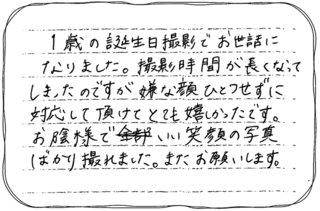 1歳の誕生日撮影でお世話に
なりました。撮影時間が長くなって
しまったのですが嫌な顔ひとつせずに
対応して頂けてとても嬉しかったです。
お陰様で全部いい笑顔の写真
ばかり撮れました。またお願いします。